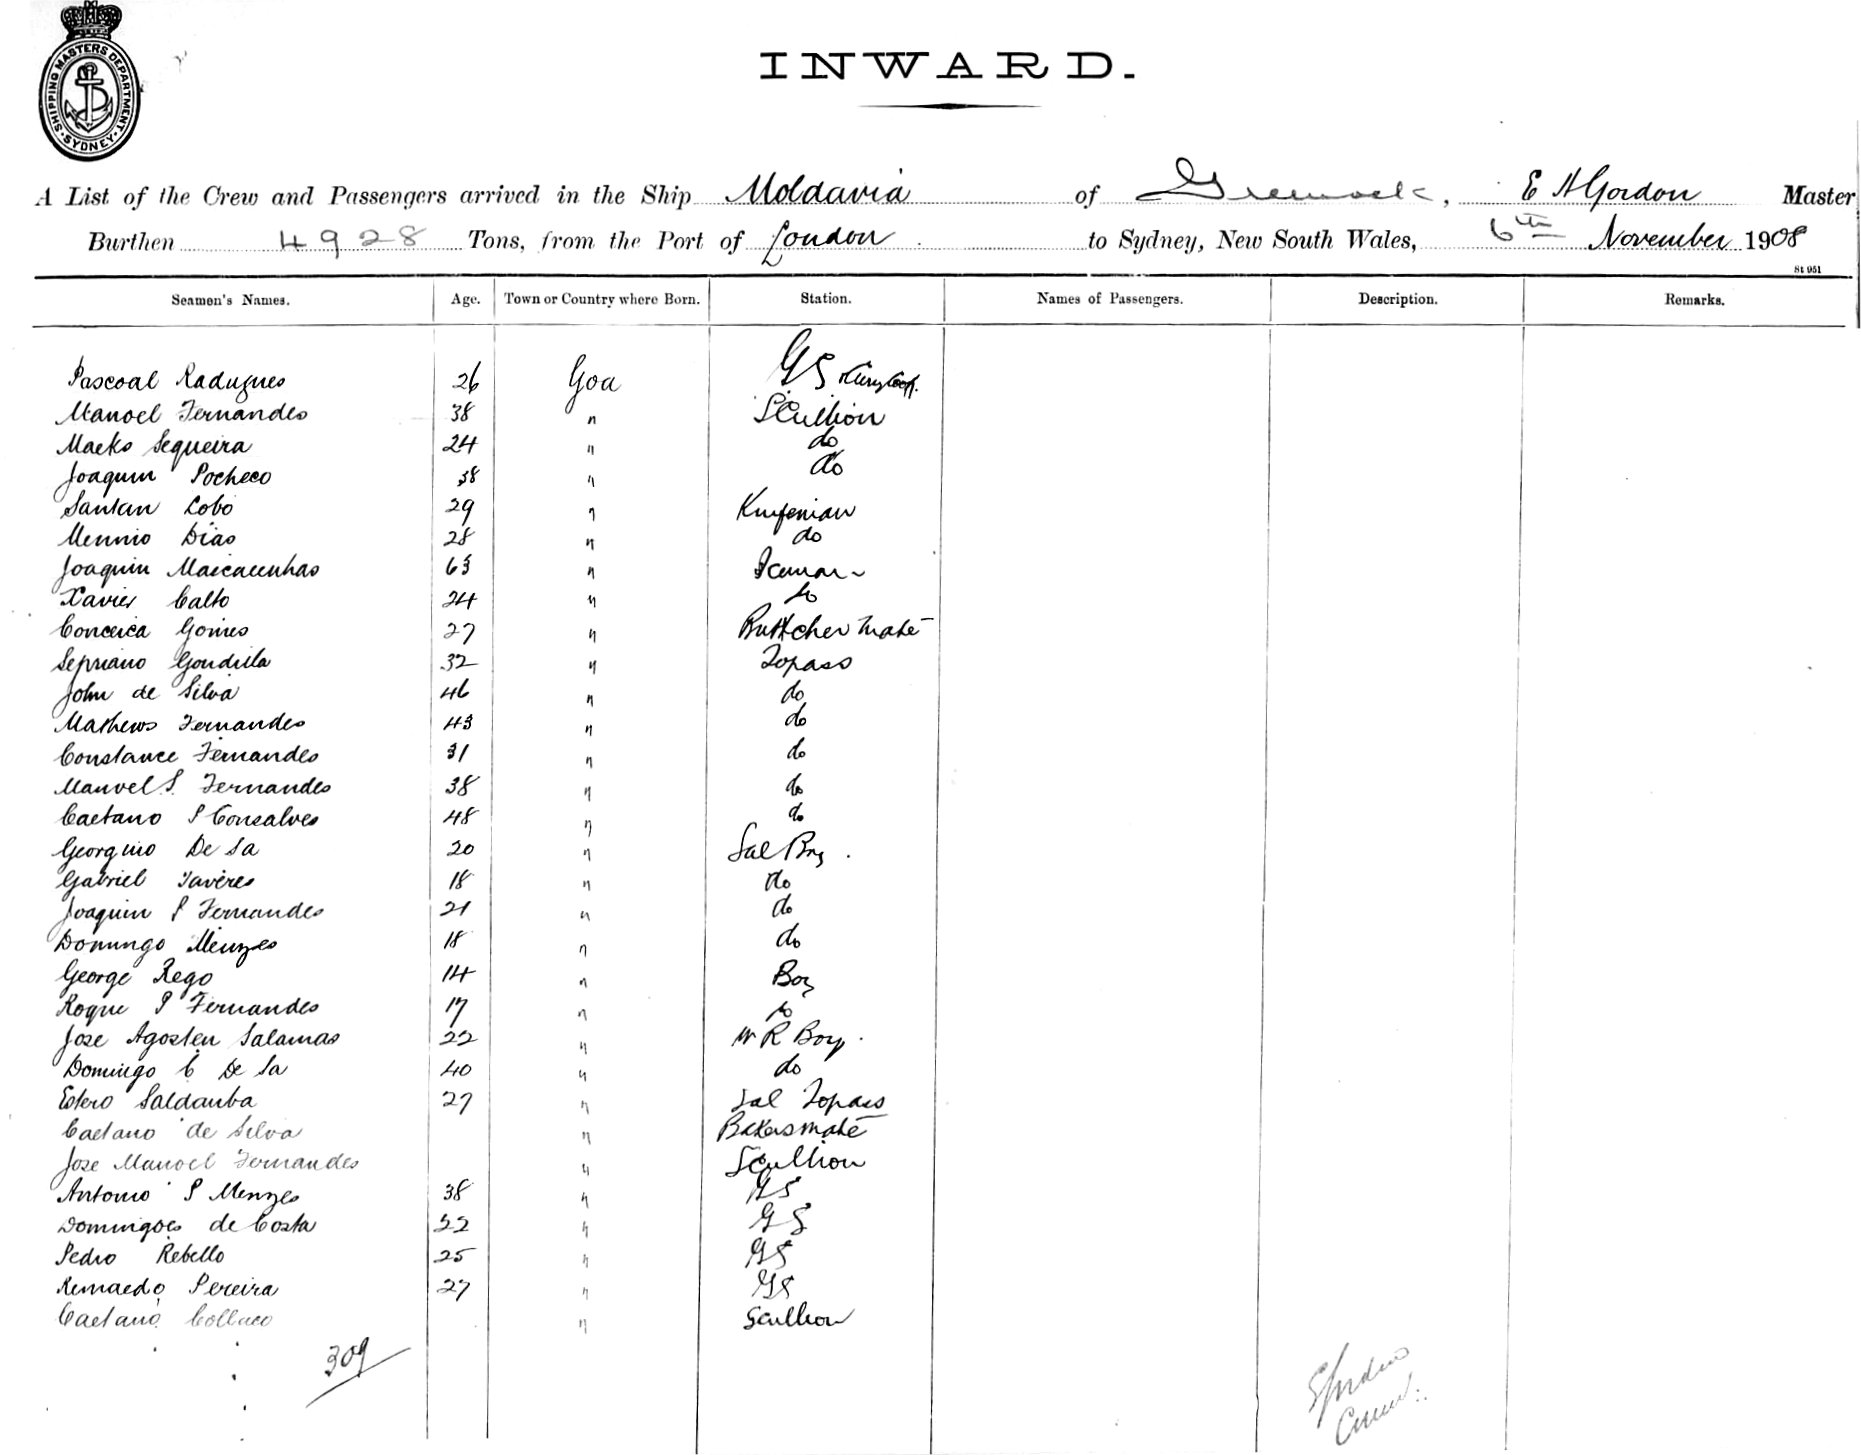 SHIPPING MASTERS DEPARTMENT · SYDNEY ·
INWARD.
A List of the Crew and Passengers arrived in the Ship Moldavia of Greenock, E H Gordon Master
Burthen 4928 Tons, from the Port of London to Sydney, New South Wales, 6th November 1908
St 951
Seamen's Names. Age. Town or Country where Born. Station. Names of Passengers. Description. Remarks.
Pascoal Radugues 26 Goa GS
Manoel Fernandes 38 " Scullion
Macks Sequeira 24 " do
Joaquim Pocheco 38 " do
Santan Lobo 29 " Knifeman
Mennio Dias 28 " do
Joaquim Maicacunhas 63 "
Xavier Calto 24 " do
Conceica Gomes 27 " Buttcher Mate
Sepriano Gondilla 32 " Topass
John de Silva 46 " do
Mathews Fernandes 43 " do
Constance Fernandes 31 " do
Manvel S. Fernandes 38 " do
Caetano P Consalves 48 " do
Georgino De Sa 20 " Sal Boy.
Gabriel Taveres 18 " do
Joaquim P Fernandes 21 " do
Domingo Menzes 18 " do
George Rego 14 " Boy
Roque P Fernandes 17 " do
Jose Agosten Salamas 22 " W R Boy.
Domingo C De Sa 40 " do
Estero Saldanha 27 " Sal Topass
Caetano de Silva " Bakers mate
Jose Manoel Fernandes " Scullion
Antonio P Menzes 38 " GS
Domingoes de Costa 22 " GS
Pedro Rebello 25 " GS
Pereira 27 " GS
Caetano Collaco " Scullion
309